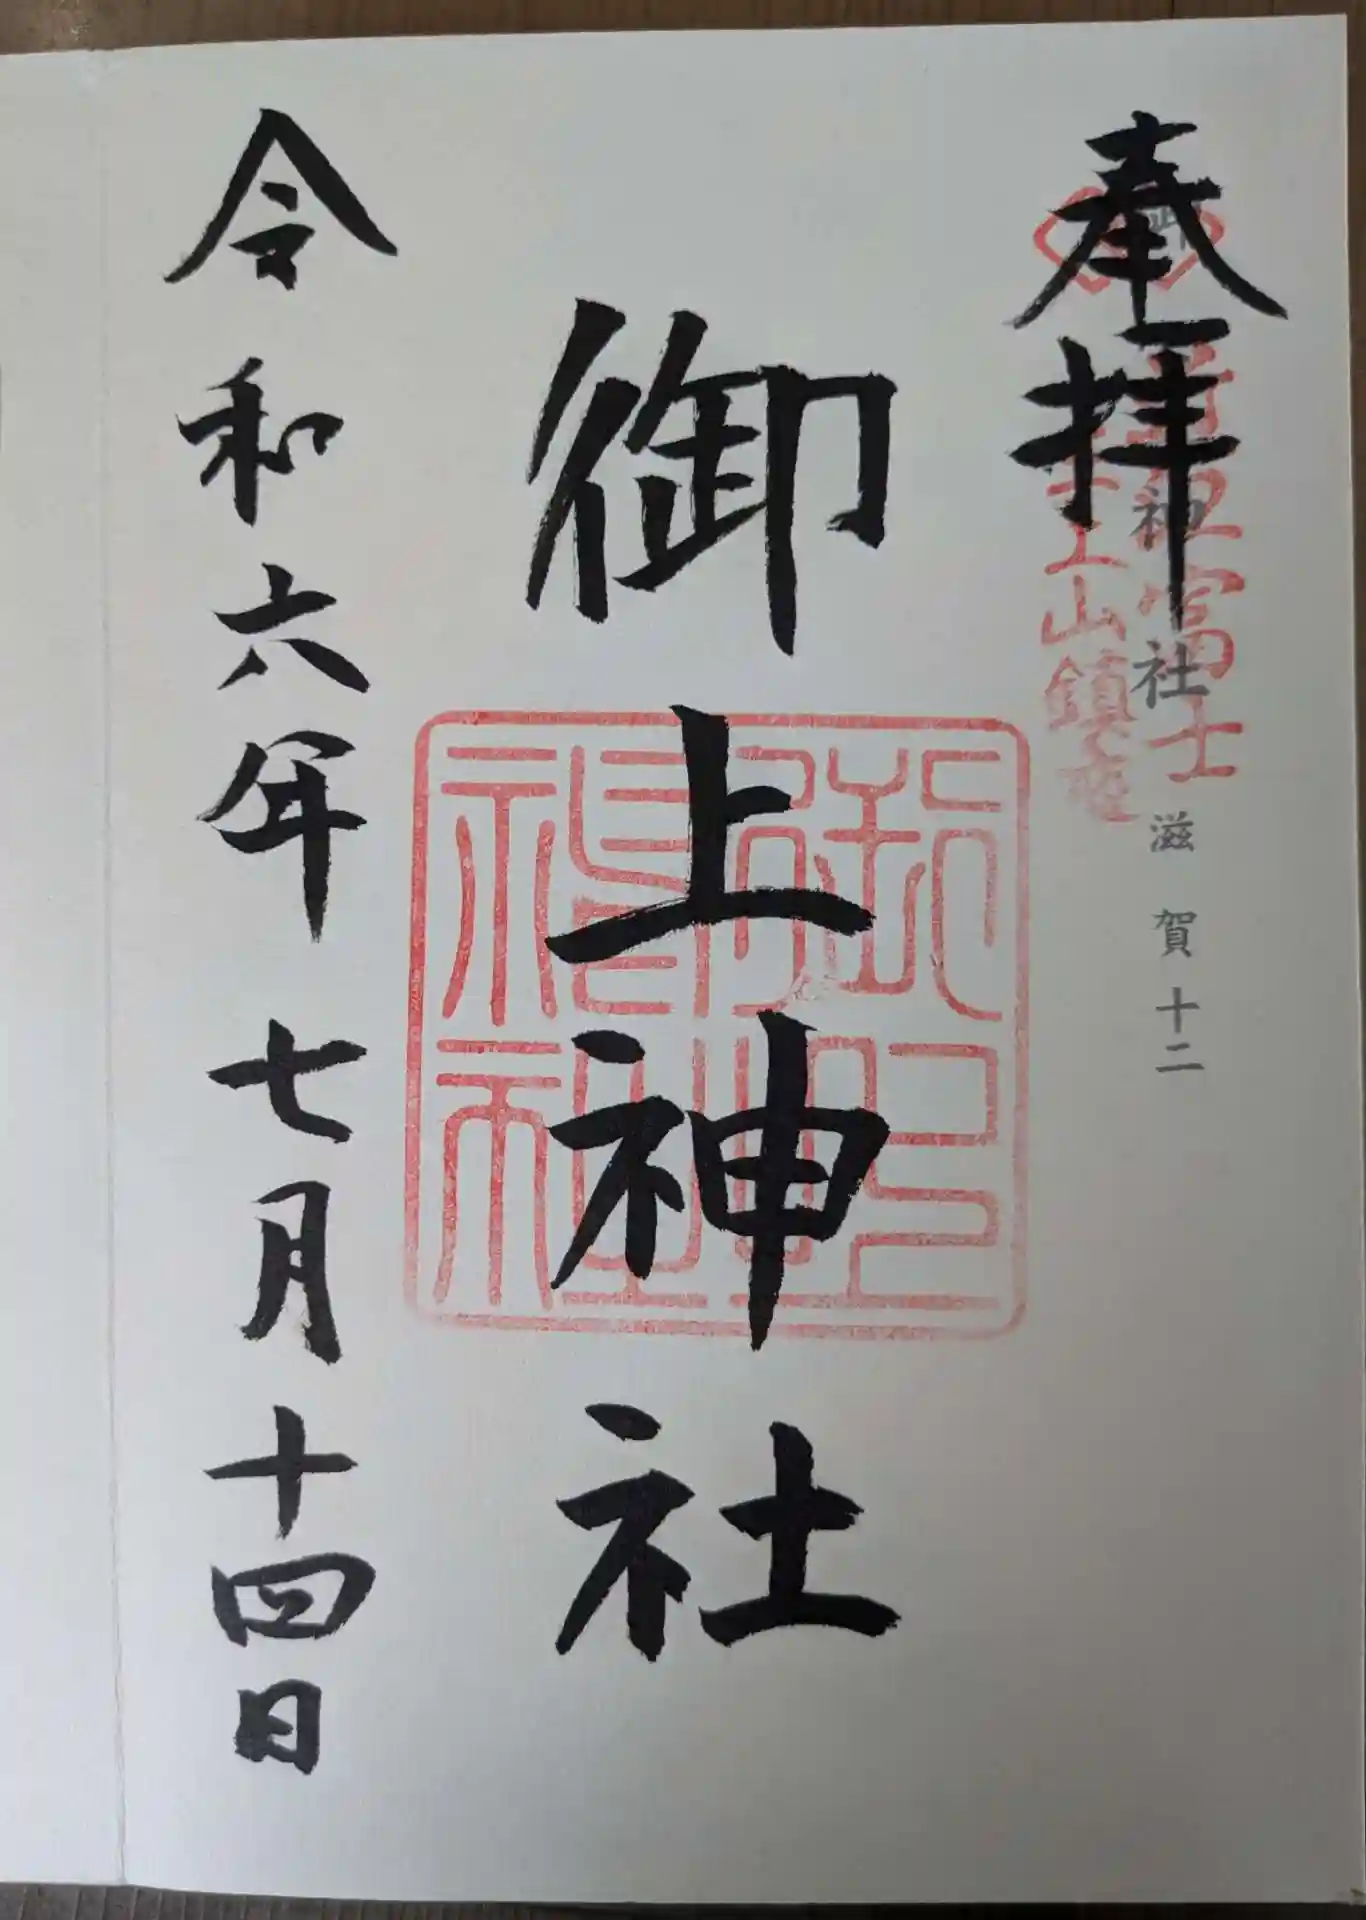 奉拝
近江富士
三上山鎮座
神社 滋賀十二
御上神社
御上神社
令和六年七月十四日